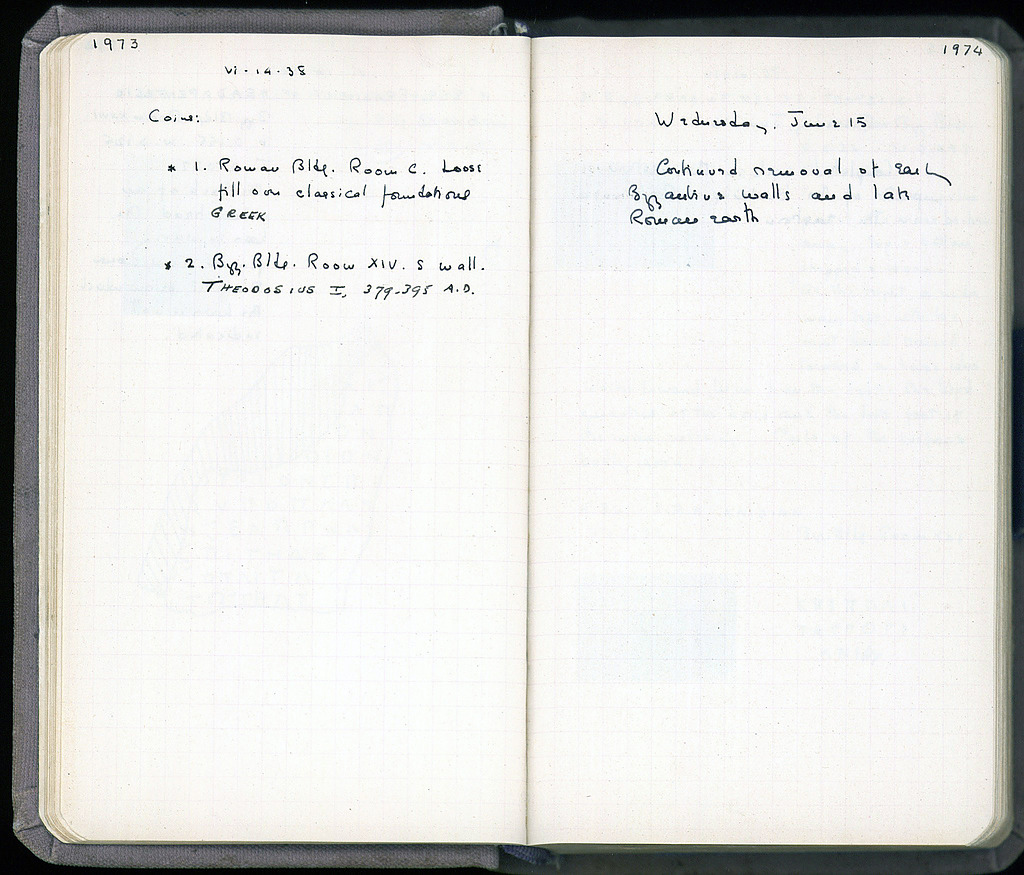 1973
vi·14·38
Coins:
* 1. Roman Bldg. Room C. Loose
fill over classical foundations
GREEK
* 2. Byz. Bldg. Room XIV. S wall.
THEODOSIUS I, 379-395 A.D.
1974
Wednesday, June 15
Continued removal of Early
Byzantine walls and late
Roman earth